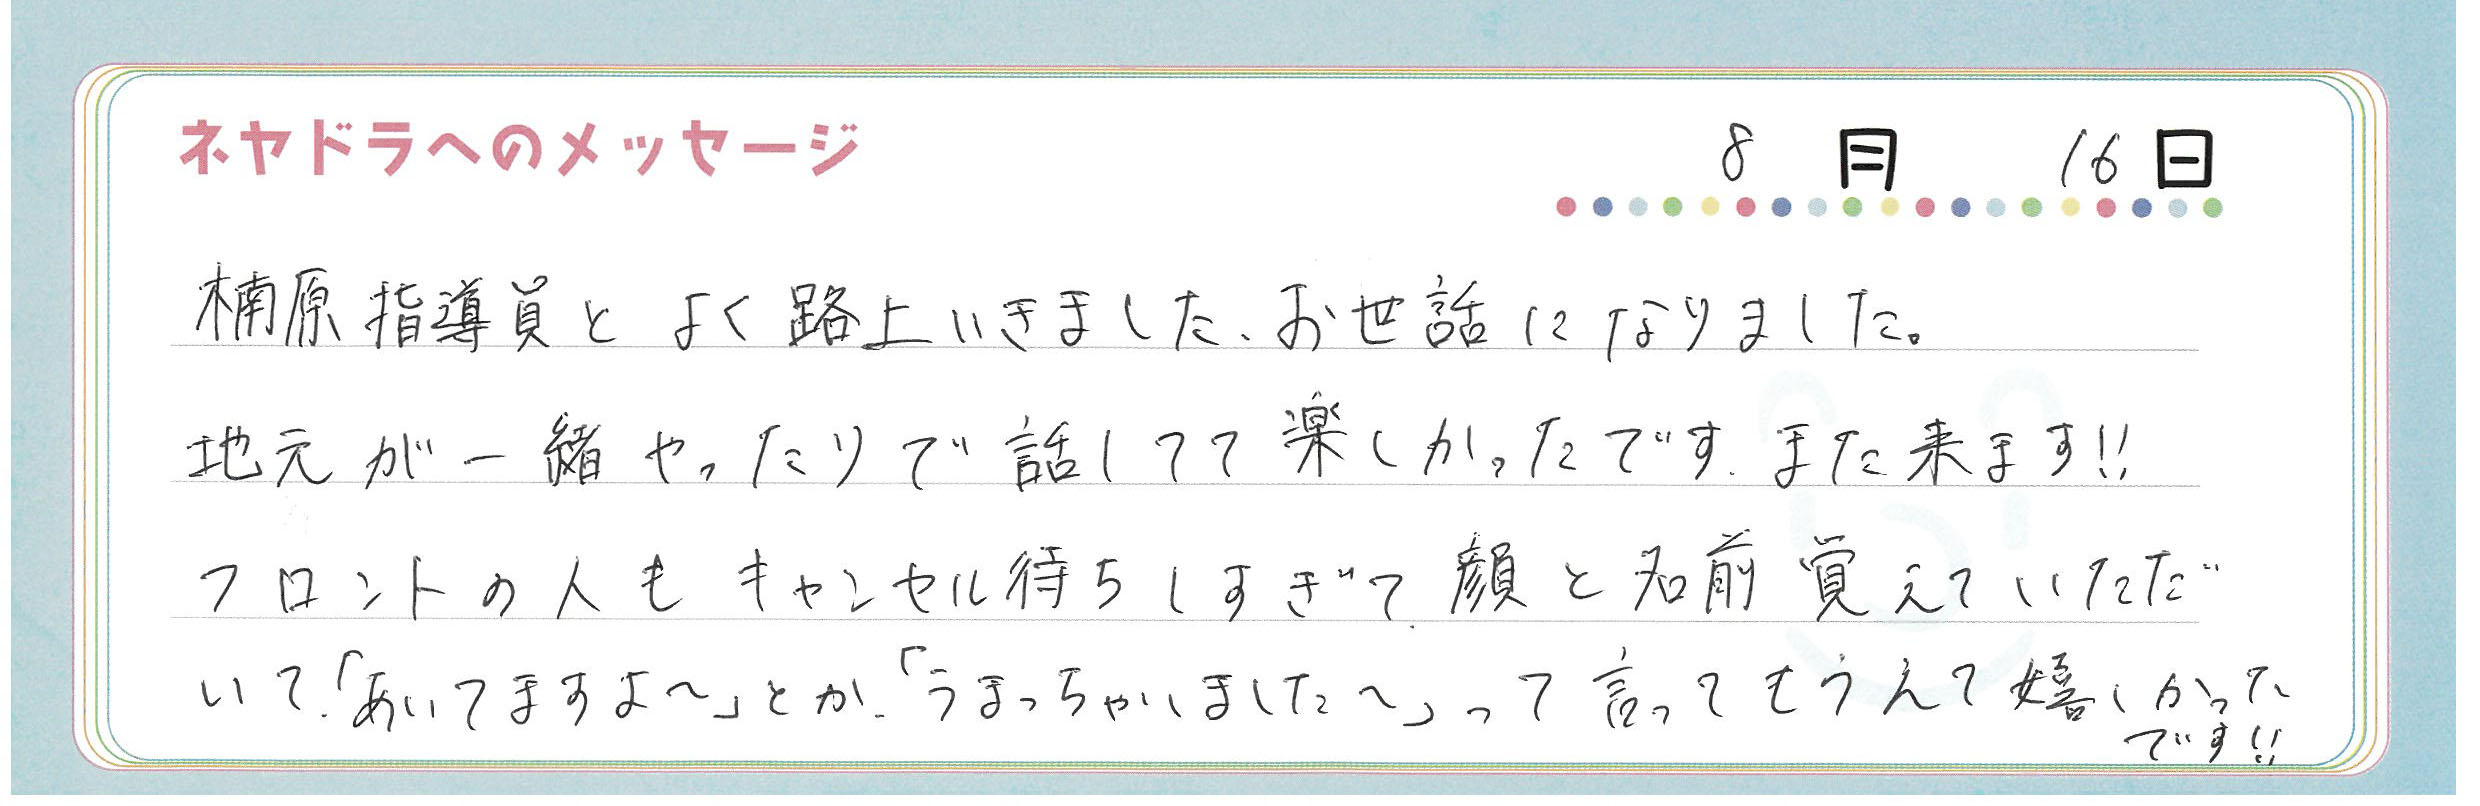 ネヤドラへのメッセージ
8月 16日
楠原指導員とよく路上いきました、お世話になりました。
地元が一緒やったりで話してて楽しかったです. また来ます!!
フロントの人もキャンセル待ちしすぎて、顔と名前覚えていただ
いて、「あいてますよ〜」とか、「うまっちゃいました〜」って言ってもうえて嬉しかった
です!!